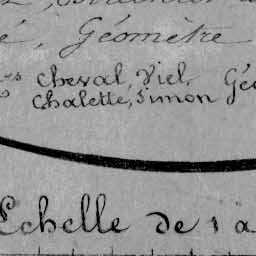 é, Géomètre
Cheval, Viel, Géo
Chalette, Simon
Echelle de 1 a